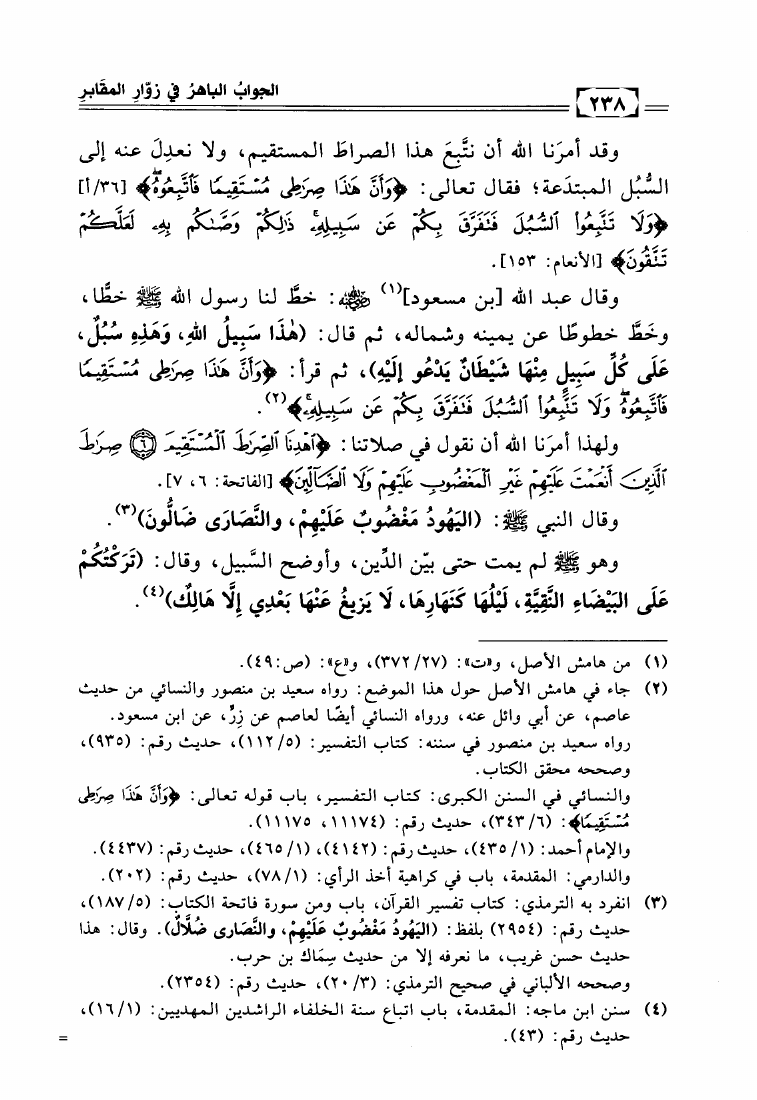 الجوابُ الباهرُ في زوّارِ المقابرِ
٢٣٨
وقد أمرَنا الله أن نتَّبِعَ هذا الصراطَ المستقيم، ولا نعدِلَ عنه إلى
السُّبُل المبتدَعة؛ فقال تعالى: ﴿وَأَنَّ هَٰذَا صِرَٰطِى مُسْتَقِيمًا فَٱتَّبِعُوهُ﴾ [٣٦/أ]
﴿وَلَا تَتَّبِعُوا۟ ٱلسُّبُلَ فَتَفَرَّقَ بِكُمْ عَن سَبِيلِهِۦ ذَٰلِكُمْ وَصَّىٰكُم بِهِۦ لَعَلَّكُمْ
تَتَّقُونَ﴾ [الأنعام: ١٥٣].
وقال عبد الله [بن مسعود](١) ﵁: خطَّ لنا رسول الله ﷺ خطًّا،
وخَطَّ خطوطًا عن يمينه وشماله، ثم قال: (هَٰذَا سَبِيلُ اللهِ، وَهَذِهِ سُبُلٌ،
عَلَى كُلِّ سَبِيلٍ مِنْهَا شَيْطَانٌ يَدْعُو إِلَيْهِ)، ثم قرأ: ﴿وَأَنَّ هَٰذَا صِرَٰطِى مُسْتَقِيمًا
فَٱتَّبِعُوهُ وَلَا تَتَّبِعُوا۟ ٱلسُّبُلَ فَتَفَرَّقَ بِكُمْ عَن سَبِيلِهِۦ﴾(٢).
ولهذا أمرَنا الله أن نقول في صلاتنا: ﴿ٱهْدِنَا ٱلصِّرَٰطَ ٱلْمُسْتَقِيمَ ۝٦ صِرَٰطَ
ٱلَّذِينَ أَنْعَمْتَ عَلَيْهِمْ غَيْرِ ٱلْمَغْضُوبِ عَلَيْهِمْ وَلَا ٱلضَّآلِّينَ﴾ [الفاتحة: ٦، ٧].
وقال النبي ﷺ: (اليَهُودُ مَغْضُوبٌ عَلَيْهِمْ، والنَّصَارَى ضَالُّونَ)(٣).
وهو ﷺ لم يمت حتى بيّن الدِّين، وأوضح السَّبيل، وقال: (تَرَكْتُكُمْ
عَلَى البَيْضَاءِ النَّقِيَّةِ، لَيْلُهَا كَنَهَارِهَا، لَا يَزِيغُ عَنْهَا بَعْدِي إِلَّا هَالِكٌ)(٤).
(١) من هامش الأصل، و«ت»: (٣٧٢/٢٧)، و«ع»: (ص:٤٩).
(٢) جاء في هامش الأصل حول هذا الموضع: رواه سعيد بن منصور والنسائي من حديث
عاصم، عن أبي وائل عنه، ورواه النسائي أيضًا لعاصم عن زِرٍّ، عن ابن مسعود.
رواه سعيد بن منصور في سننه: كتاب التفسير: (١١٢/٥)، حديث رقم: (٩٣٥)،
وصححه محقق الكتاب.
والنسائي في السنن الكبرى: كتاب التفسير، باب قوله تعالى: ﴿وَأَنَّ هَٰذَا صِرَٰطِى
مُسْتَقِيمًا﴾: (٣٤٣/٦)، حديث رقم: (١١١٧٤، ١١١٧٥).
والإمام أحمد: (٤٣٥/١)، حديث رقم: (٤١٤٢)، (٤٦٥/١)، حديث رقم: (٤٤٣٧).
والدارمي: المقدمة، باب في كراهية أخذ الرأي: (٧٨/١)، حديث رقم: (٢٠٢).
(٣) انفرد به الترمذي: كتاب تفسير القرآن، باب ومن سورة فاتحة الكتاب: (١٨٧/٥)،
حديث رقم: (٢٩٥٤) بلفظ: (اليَهُودُ مَغْضُوبٌ عَلَيْهِمْ، والنَّصَارى ضُلَّالٌ). وقال: هذا
حديث حسن غريب، ما نعرفه إلا من حديث سِمَاك بن حرب.
وصححه الألباني في صحيح الترمذي: (٢٠/٣)، حديث رقم: (٢٣٥٤).
(٤) سنن ابن ماجه: المقدمة، باب اتباع سنة الخلفاء الراشدين المهديين: (١٦/١)،
حديث رقم: (٤٣).
=